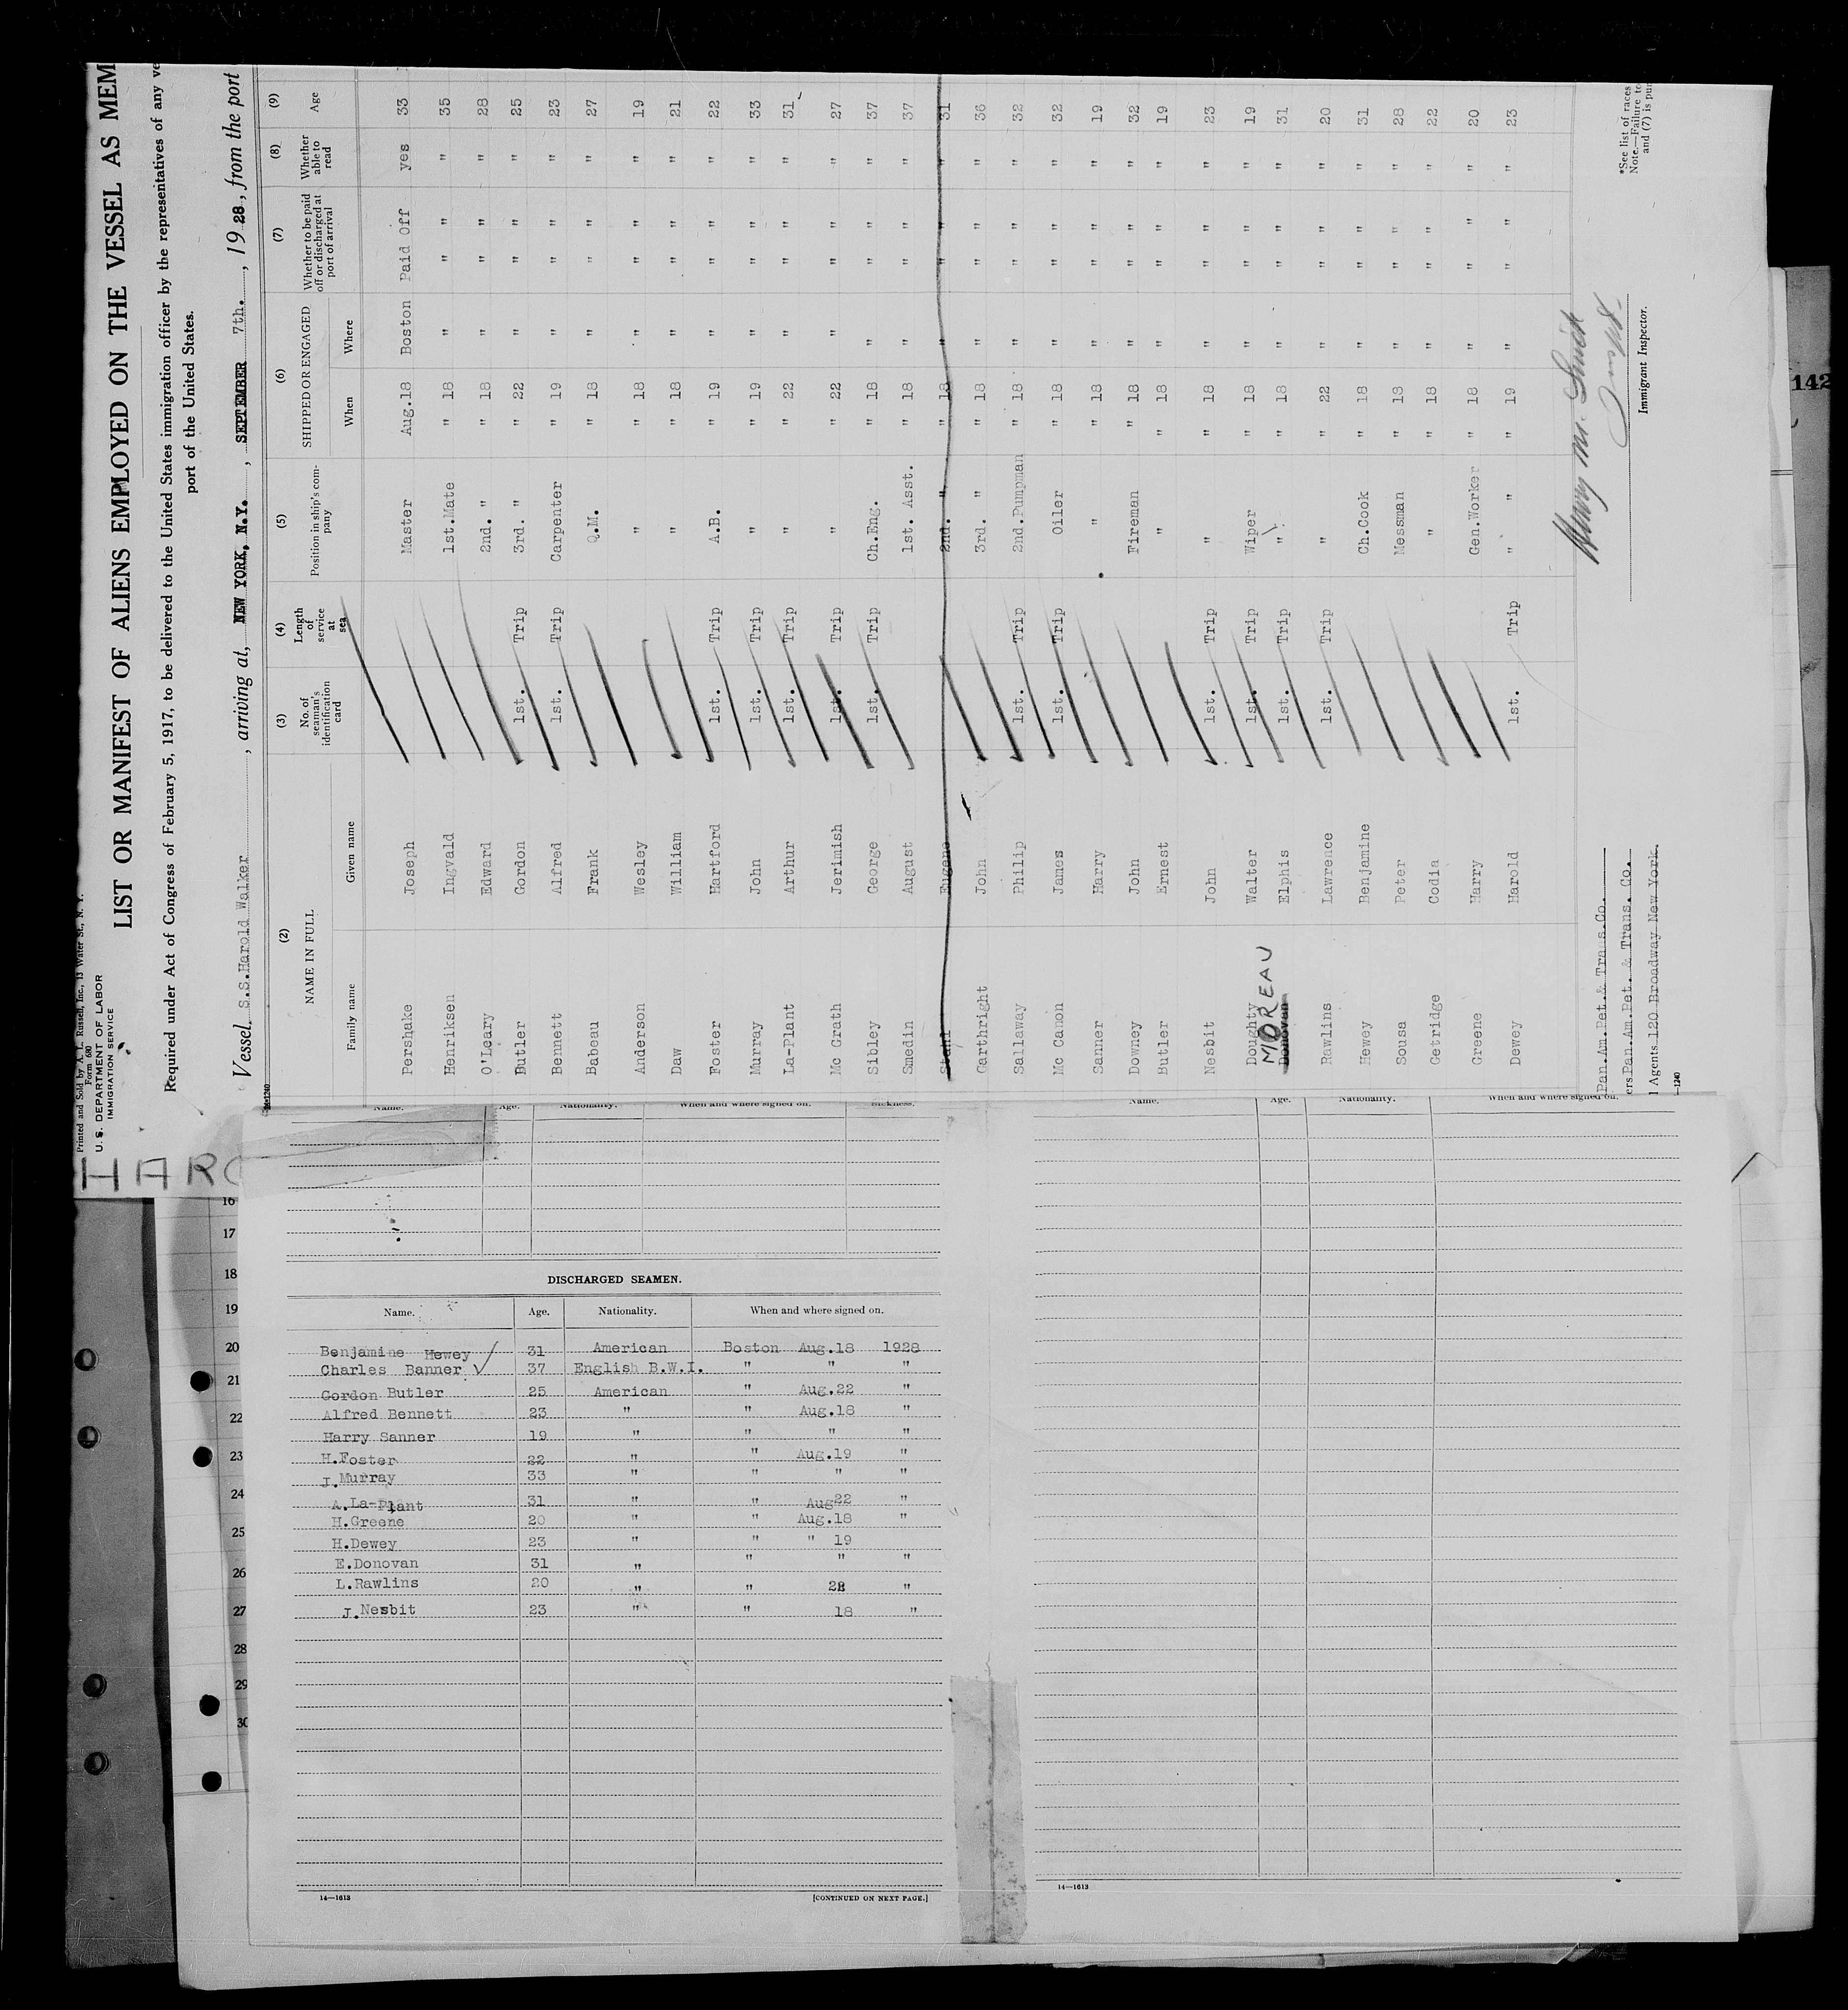 HARO
Printed and Sold by A. L. Russell, Inc., 13 Water St., N. Y.
Form 680
U. S. DEPARTMENT OF LABOR
IMMIGRATION SERVICE
LIST OR MANIFEST OF ALIENS EMPLOYED ON THE VESSEL AS MEM
Required under Act of Congress of February 5, 1917, to be delivered to the United States immigration officer by the representatives of any ve
port of the United States.
Vessel S.S.Harold Walker, arriving at, NEW YORK, N.Y., SEPTEMBER 7th., 1928, from the port
(2) (3) (4) (5) (6) (7) (8) (9)
NAME IN FULL No. of seaman's identification card Length of service at sea Position in ship's company SHIPPED OR ENGAGED Whether to be paid off or discharged at port of arrival Whether able to read Age
Family name Given name When Where
Pershake Joseph Master Aug.18 Boston Paid Off yes 33
Henriksen Ingvald 1st.Mate " 18 " " " " 35
O'Leary Edward 2nd. " " 18 " " " " 28
Butler Gordon 1st. Trip 3rd. " " 22 " " " " 25
Bennett Alfred 1st. Trip Carpenter " 19 " " " " 23
Babeau Frank Q.M. " 18 " " " " 27
Anderson Wesley " " 18 " " " " 19
Daw William " " 18 " " " " 21
Foster Hartford 1st. Trip A.B. " 19 " " " " 22
Murray John 1st. Trip " " 19 " " " " 33
La-Plant Arthur 1st. Trip " " 22 " " " " 31
Mc Grath Jerimish 1st. Trip " " 22 " " " " 27
Sibley George 1st. Trip Ch.Eng. " 18 " " " " 37
Smedin August 1st. Asst. " 18 " " " " 37
Stahl Eugene 2nd. " " 18 " " " " 31
Garthright John 3rd. " " 18 " " " " 36
Sallaway Philip 1st. Trip 2nd.Pumpman " 18 " " " " 32
Mc Canon James 1st. Trip Oiler " 18 " " " " 32
Sanner Harry " " 18 " " " " 19
Downey John Fireman " 18 " " " " 32
Butler Ernest " " 18 " " " " 19
Nesbit John 1st. Trip " " 18 " " " " 23
Doughty Walter 1st. Trip Wiper " 18 " " " " 19
MOREAU
Donovan Elphis 1st. Trip " " 18 " " " " 31
Rawlins Lawrence 1st. Trip " " 22 " " " " 20
Hewey Benjamine Ch.Cook " 18 " " " " 31
Sousa Peter Messman " 18 " " " " 28
Getridge Codia " " 18 " " " " 22
Greene Harry Gen.Worker " 18 " " " " 20
Dewey Harold 1st. Trip " " " 19 " " " " 23
Pan.Am.Pet.& Trans.Co.
ers Pan.Am.Pet. & Trans. Co.
l Agents 120 Broadway New York.
—1240
Immigrant Inspector.
*See list of races
Note.—Failure to
and (7) is pun
142
Name. Age. Nationality. When and where signed on. Sickness.
Name. Age. Nationality. When and where signed on.
16
17
18
19
20
21
22
23
24
25
26
27
28
29
30
DISCHARGED SEAMEN.
Name. Age. Nationality. When and where signed on.
Benjamine Hewey 31 American Boston Aug.18 1928
Charles Banner 37 English B.W.I. " " "
Gordon Butler 25 American " Aug.22 "
Alfred Bennett 23 " " Aug.18 "
Harry Sanner 19 " " " "
H.Foster 22 " " Aug.19 "
J.Murray 33 " " " "
A.La-Plant 31 " " Aug22 "
H.Greene 20 " " Aug.18 "
H.Dewey 23 " " " 19
E.Donovan 31 " " " "
L.Rawlins 20 " " 22 "
J.Nesbit 23 " " 18 "
14—1613 [CONTINUED ON NEXT PAGE.]
14—1613